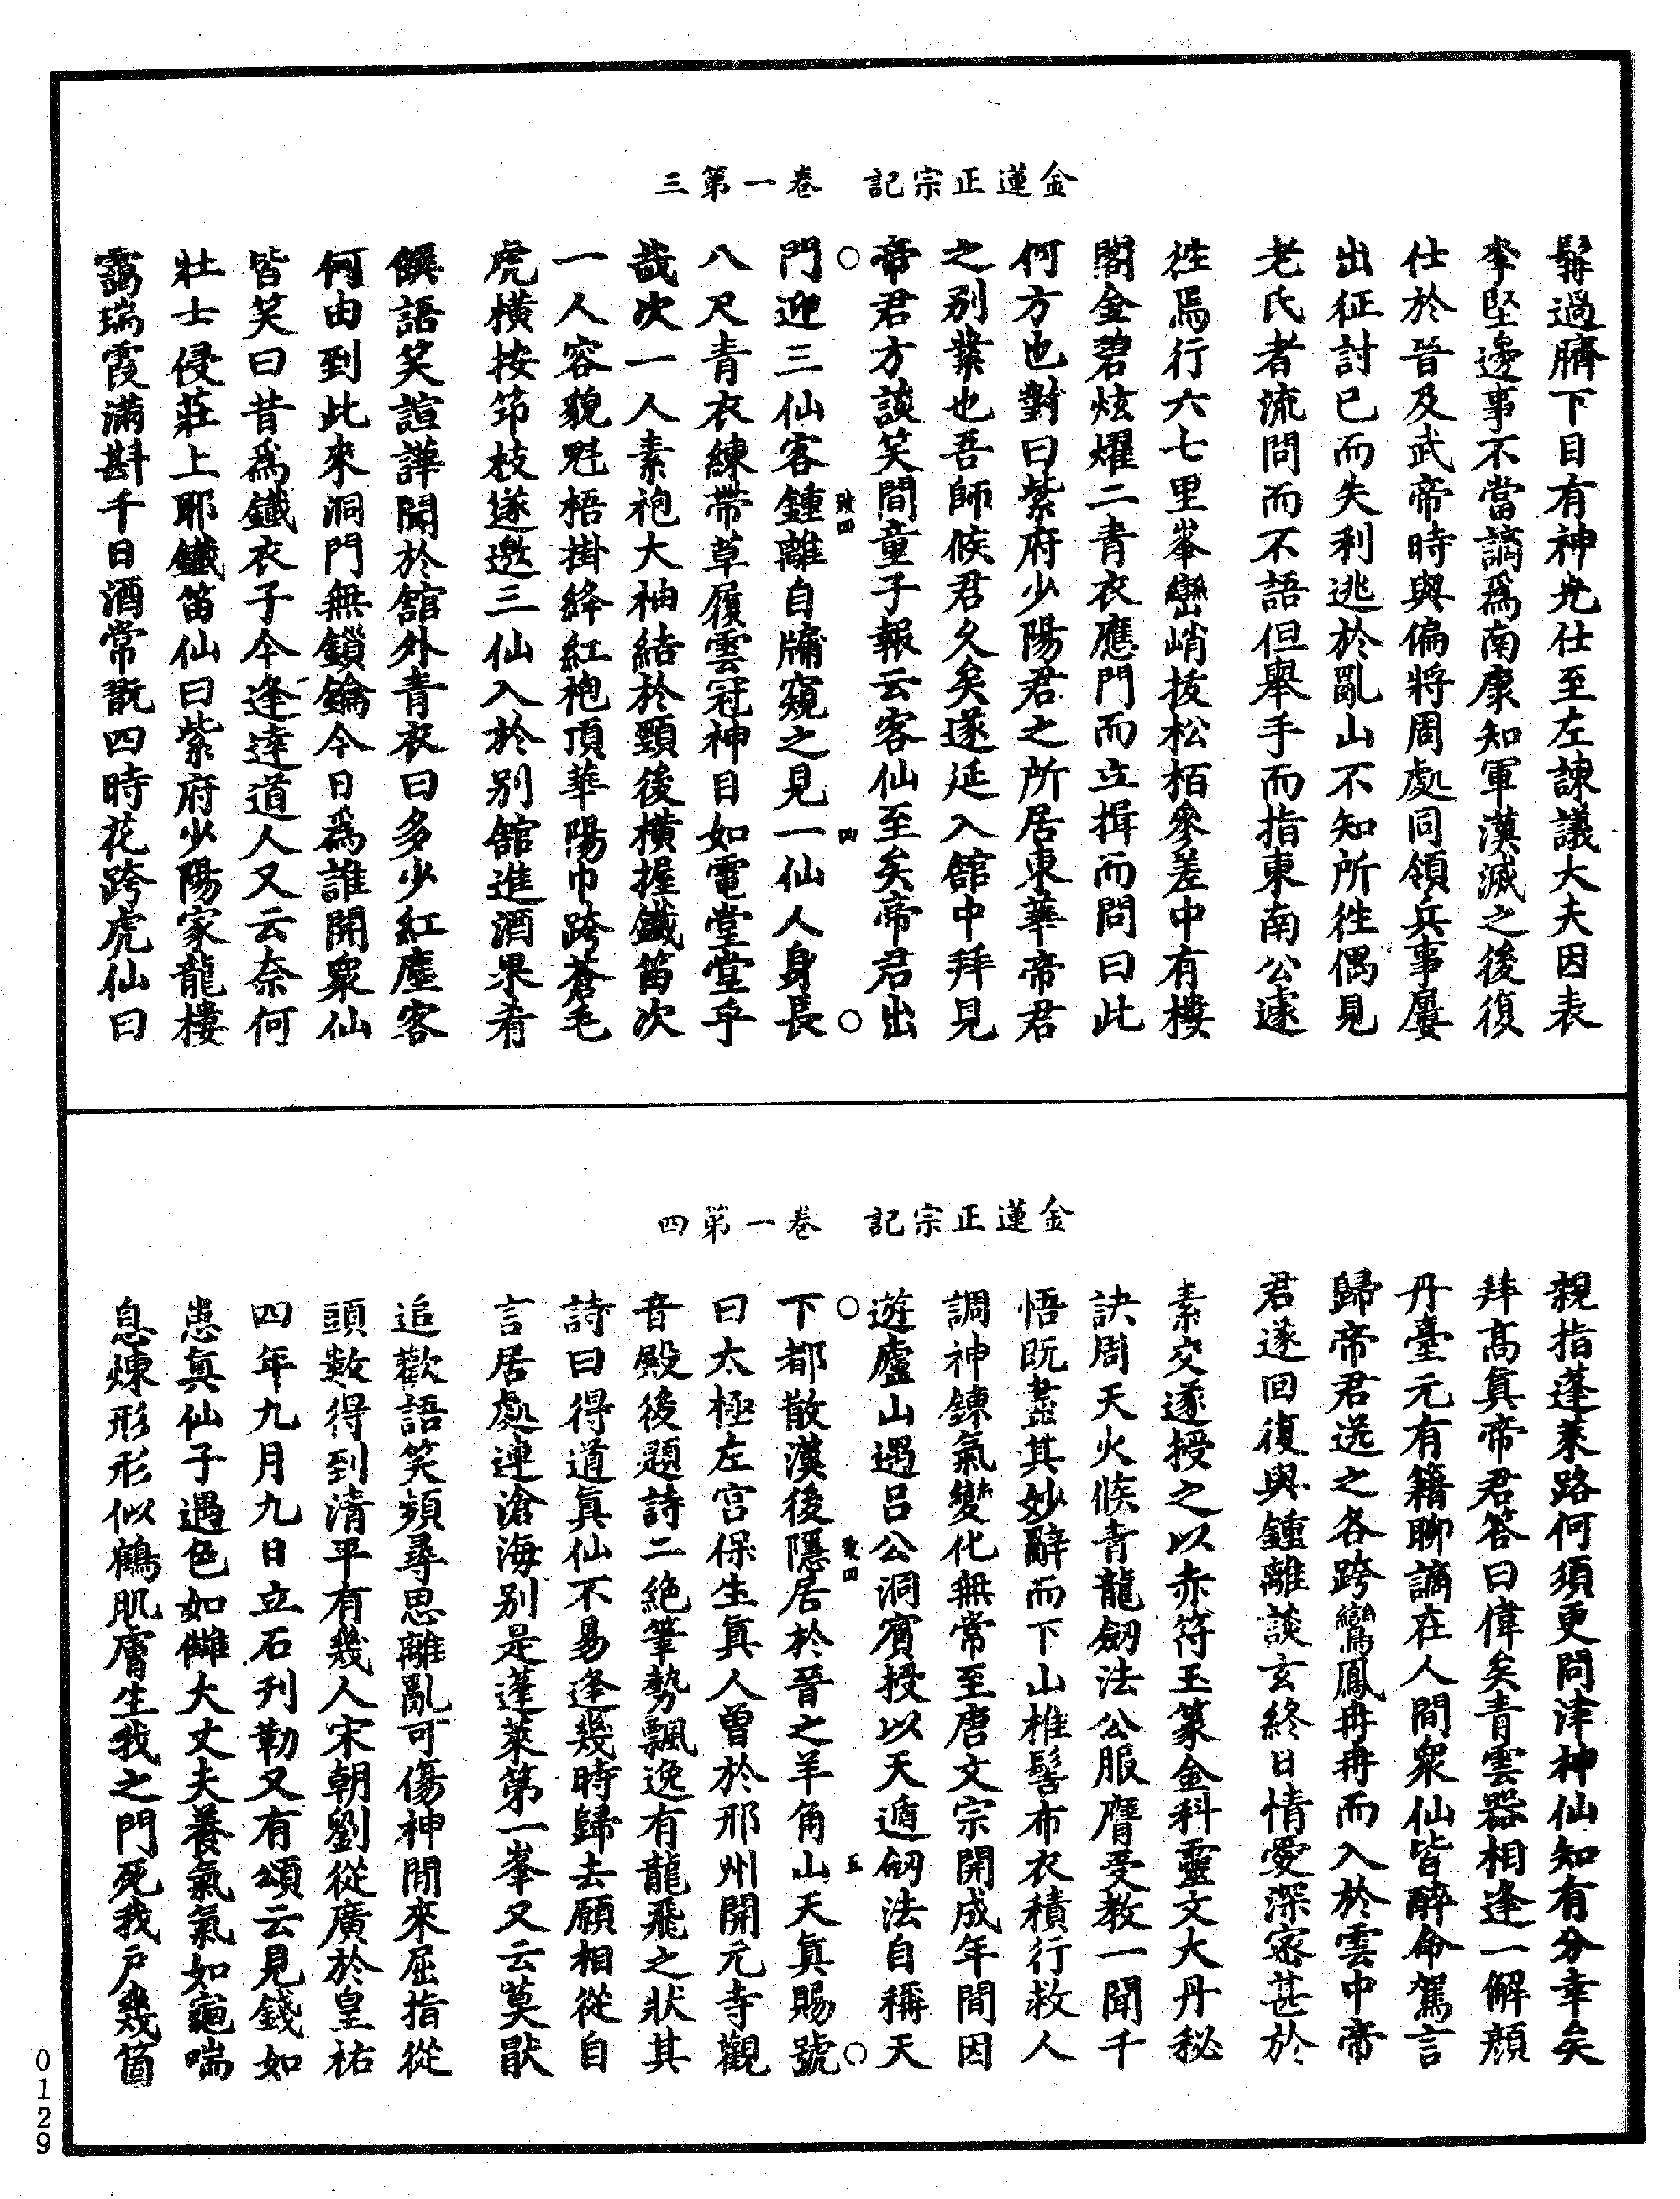 金蓮正宗記　卷一第三
髯過臍下目有神光仕至左諫議大夫因表
李堅邊事不當謫爲南康知軍漢滅之後復
仕於晉及武帝時與偏將周處同領兵事屢
出征討已而失利逃於亂山不知所徃偶見
老氏者流問而不語但舉手而指東南公遽
徃焉行六七里峯巒峭拔松栢參差中有樓
閣金碧炫燿二青衣應門而立揖而問曰此
何方也對曰紫府少陽君之所居東華帝君
之別業也吾師候君久矣遂延入舘中拜見
帝君方談笑間童子報云客仙至矣帝君出
○　致四　四　○
門迎三仙客鍾離自牖窺之見一仙人身長
八尺青衣練帶草履雲冠神目如電堂堂乎
哉次一人素袍大袖結於頸後橫握鐵笛次
一人容貌魁梧掛絳紅袍頂華陽巾跨蒼毛
虎橫按笻枝遂邀三仙入於別舘進酒果肴
饌語笑諠譁聞於舘外青衣曰多少紅塵客
何由到此來洞門無鎖鑰今日爲誰開衆仙
皆笑曰昔爲鐵衣子今逢達道人又云奈何
壯士侵莊上耶鐵笛仙曰紫府少陽家龍樓
靄瑞霞滿斟千日酒常翫四時花跨虎仙曰
金蓮正宗記　卷一第四
親指蓬萊路何須更問津神仙知有分幸矣
拜高真帝君答曰偉矣青雲器相逢一解顏
丹臺元有籍聊謫在人間衆仙皆醉命駕言
歸帝君送之各跨鸞鳳冉冉而入於雲中帝
君遂回復與鍾離談玄終日情愛深密甚於
素交遂授之以赤符玉篆金科靈文大丹秘
訣周天火候青龍劒法公服膺受教一聞千
悟既盡其妙辭而下山椎髻布衣積行救人
調神鍊氣變化無常至唐文宗開成年間因
遊廬山遇呂公洞賓授以天遁劒法自稱天
○　致四　五　○
下都散漢後隱居於晉之羊角山天真賜號
曰太極左宮保生真人曾於邢州開元寺觀
音殿後題詩二絕筆勢飄逸有龍飛之狀其
詩曰得道真仙不易逢幾時歸去願相從自
言居處連滄海別是蓬萊第一峯又云莫猒
追歡語笑頻尋思離亂可傷神閒來屈指從
頭數得到清平有幾人宋朝劉從廣於皇祐
四年九月九日立石刋勒又有頌云見錢如
患真仙子遇色如讎大丈夫養氣氣如龜喘
息煉形形似鶴肌膚生我之門死我戸幾箇
0129